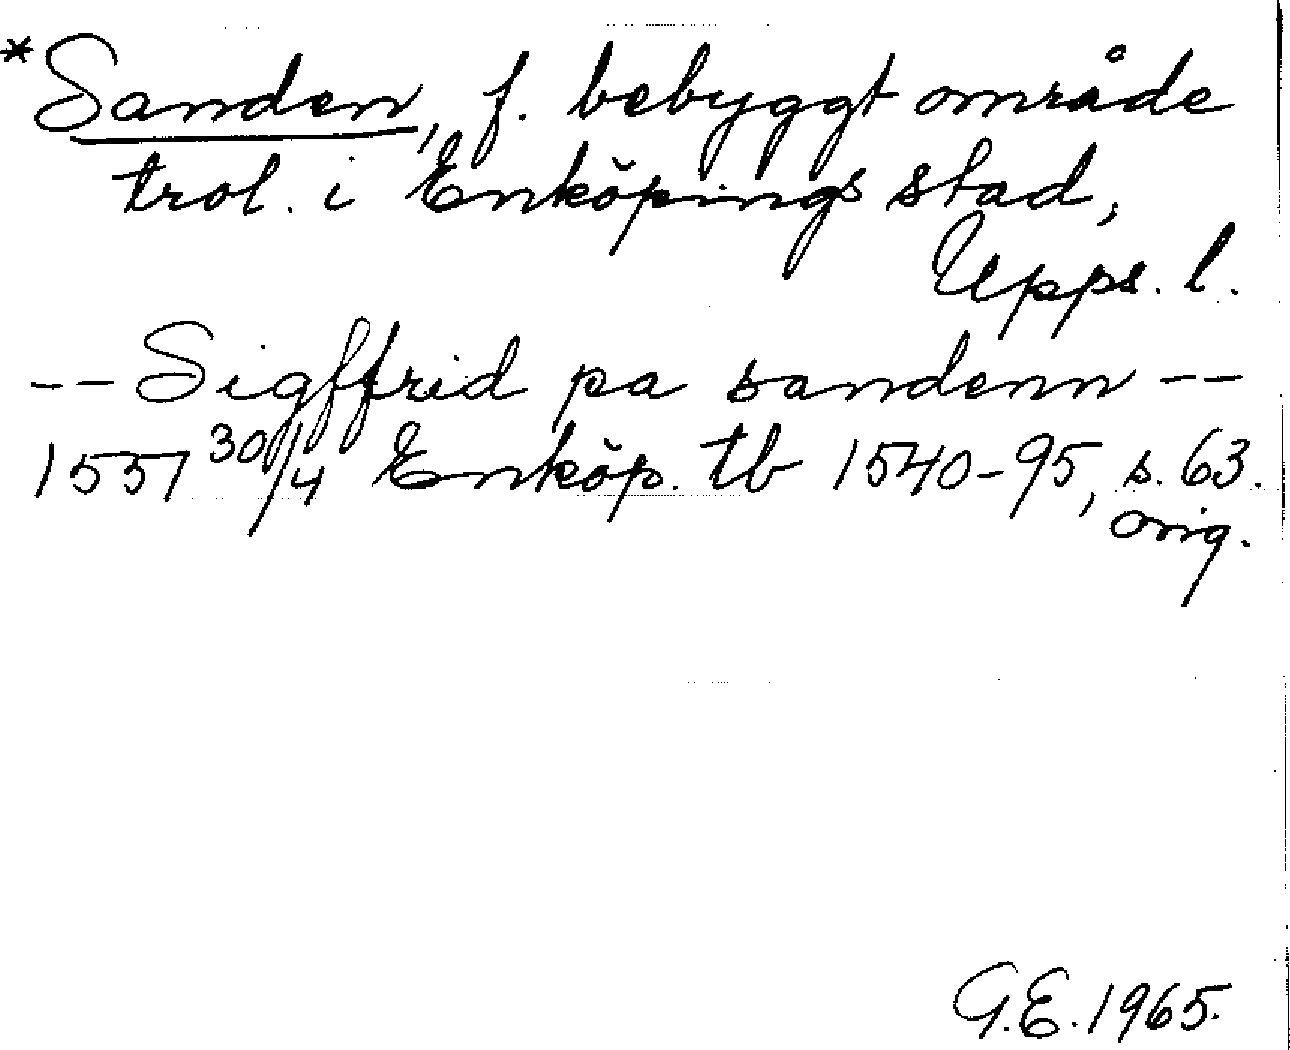 *Sanden, f. bebyggt område
trol. i Enköpings stad,
Upps. l.
-- Sigffrid pa sandenn --
1557 30/4 Enköp. tb 1540-95, s. 63.
orig.
G.E. 1965.